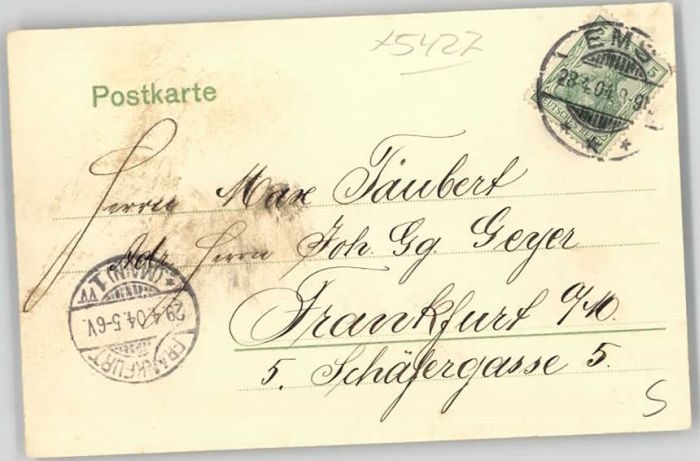 x5427
EMS
28.4.04
5
Postkarte
Herrn Max Täubert
Adr. Herrn Joh. Gg. Geyer
Frankfurt a/M.
5. Schäfergasse 5.
FRANKFURT (MAIN) 1
29.4.04.5-6V.
S